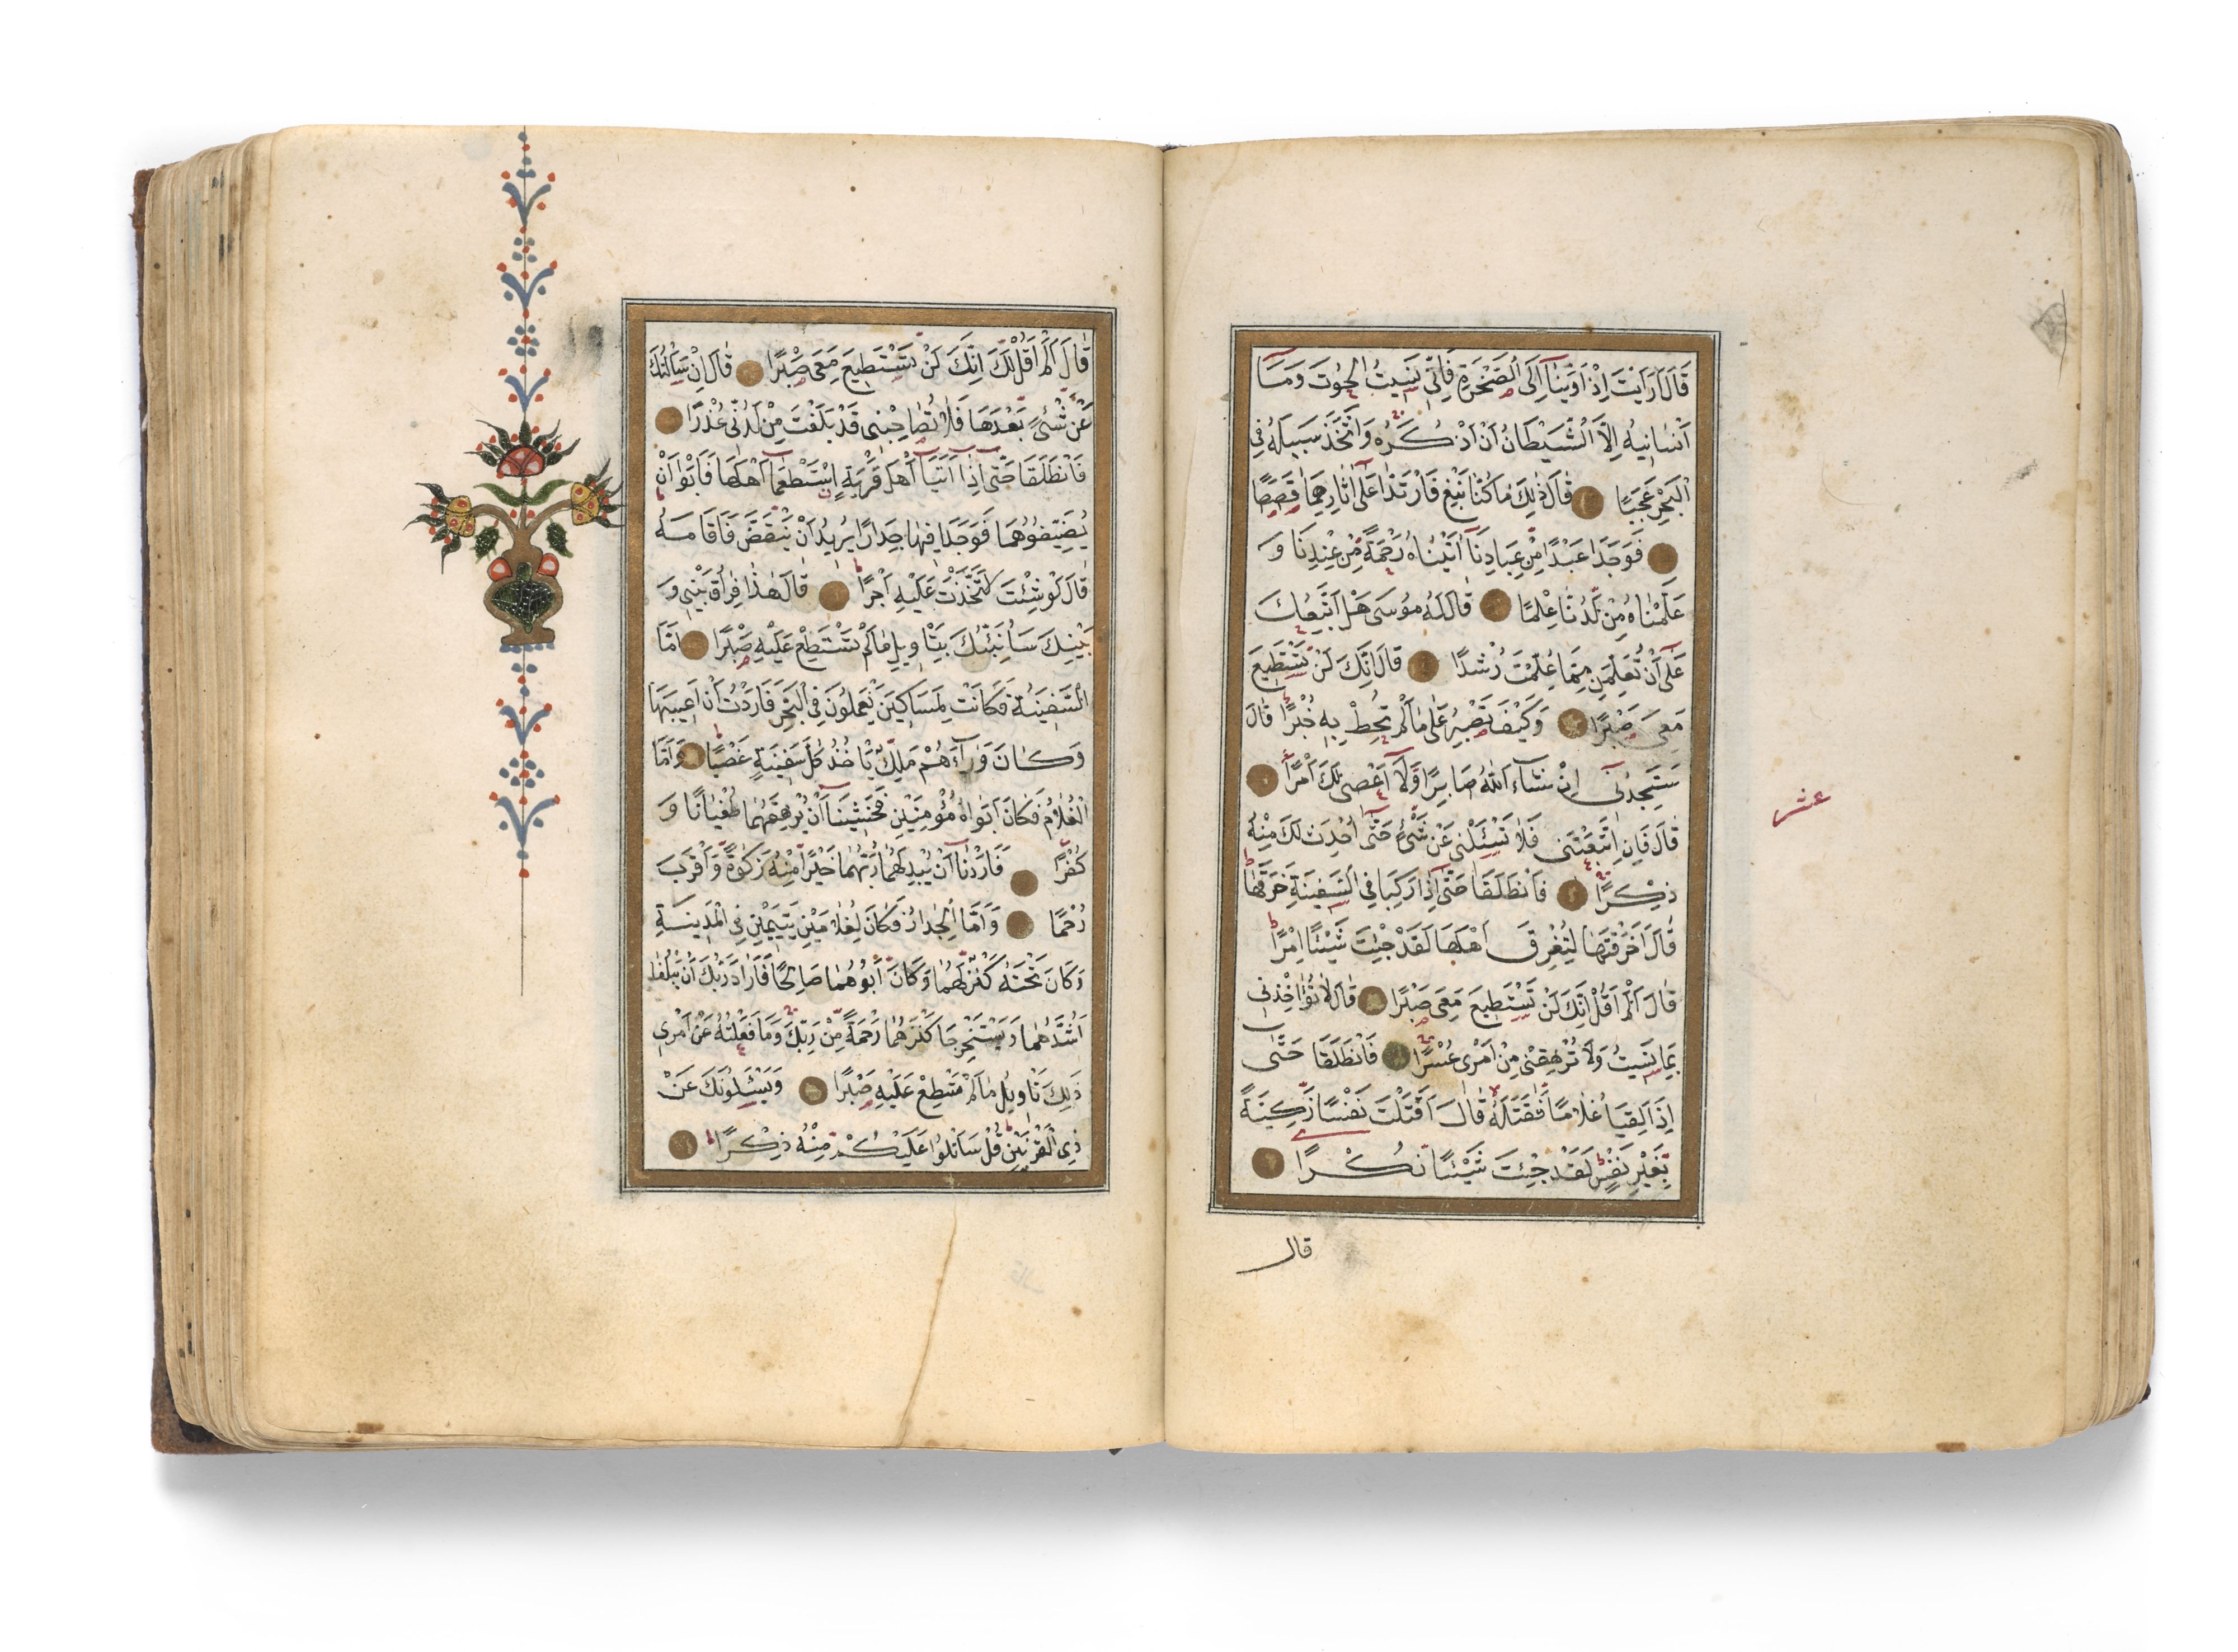 قَالَ اَرَاَيْتَ اِذْ اَوَيْنَٓا اِلَى الصَّخْرَةِ فَاِنّٖى نَسٖيتُ الْحُوتَ وَمَٓا
اَنْسَانٖيهُ اِلَّا الشَّيْطَانُ اَنْ اَذْكُرَهُ وَاتَّخَذَ سَبٖيلَهُ فِى
الْبَحْرِ عَجَبًا قَالَ ذٰلِكَ مَاكُنَّا نَبْغِ فَارْتَدَّا عَلٰٓى اٰثَارِهِمَا قَصَصًا
فَوَجَدَا عَبْدًا مِنْ عِبَادِنَٓا اٰتَيْنَاهُ رَحْمَةً مِنْ عِنْدِنَا وَ
عَلَّمْنَاهُ مِنْ لَدُنَّا عِلْمًا قَالَ لَهُ مُوسٰى هَلْ اَتَّبِعُكَ
عَلٰٓى اَنْ تُعَلِّمَنِ مِمَّا عُلِّمْتَ رُشْدًا قَالَ اِنَّكَ لَنْ تَسْتَطٖيعَ
مَعِىَ صَبْرًا وَكَيْفَ تَصْبِرُ عَلٰى مَالَمْ تُحِطْ بِهٖ خُبْرًا قَالَ
سَتَجِدُنٖٓى اِنْ شَٓاءَ اللّٰهُ صَابِرًا وَلَٓا اَعْصٖى لَكَ اَمْرًا
قَالَ فَاِنِ اتَّبَعْتَنٖى فَلَا تَسْـَٔلْنٖى عَنْ شَىْءٍ حَتّٰٓى اُحْدِثَ لَكَ مِنْهُ
ذِكْرًا فَانْطَلَقَا حَتّٰٓى اِذَا رَكِبَا فِى السَّفٖينَةِ خَرَقَهَا
قَالَ اَخَرَقْتَهَا لِتُغْرِقَ اَهْلَهَا لَقَدْ جِئْتَ شَيْئًا اِمْرًا
قَالَ اَلَمْ اَقُلْ اِنَّكَ لَنْ تَسْتَطٖيعَ مَعِىَ صَبْرًا قَالَ لَا تُؤَاخِذْنٖى
بِمَا نَسٖيتُ وَلَا تُرْهِقْنٖى مِنْ اَمْرٖى عُسْرًا فَانْطَلَقَا حَتّٰٓى
اِذَا لَقِيَا غُلَامًا فَقَتَلَهُ قَالَ اَقَتَلْتَ نَفْسًا زَكِيَّةً
بِغَيْرِ نَفْسٍ لَقَدْ جِئْتَ شَيْئًا نُكْرًا
قال
عشر
قَالَ اَلَمْ اَقُلْ لَكَ اِنَّكَ لَنْ تَسْتَطٖيعَ مَعِىَ صَبْرًا قَالَ اِنْ سَاَلْتُكَ
عَنْ شَىْءٍ بَعْدَهَا فَلَا تُصَاحِبْنٖى قَدْ بَلَغْتَ مِنْ لَدُنّٖى عُذْرًا
فَانْطَلَقَا حَتّٰٓى اِذَٓا اَتَيَٓا اَهْلَ قَرْيَةٍ اِسْتَطْعَمَٓا اَهْلَهَا فَاَبَوْا اَنْ
يُضَيِّفُوهُمَا فَوَجَدَا فٖيهَا جِدَارًا يُرٖيدُ اَنْ يَنْقَضَّ فَاَقَامَهُ
قَالَ لَوْ شِئْتَ لَتَّخَذْتَ عَلَيْهِ اَجْرًا قَالَ هٰذَا فِرَاقُ بَيْنٖى وَ
بَيْنِكَ سَاُنَبِّئُكَ بِتَاْوٖيلِ مَالَمْ تَسْتَطِعْ عَلَيْهِ صَبْرًا اَمَّا
السَّفٖينَةُ فَكَانَتْ لِمَسَاكٖينَ يَعْمَلُونَ فِى الْبَحْرِ فَاَرَدْتُ اَنْ اَعٖيبَهَا
وَكَانَ وَرَٓاءَهُمْ مَلِكٌ يَاْخُذُ كُلَّ سَفٖينَةٍ غَصْبًا وَاَمَّا
الْغُلَامُ فَكَانَ اَبَوَاهُ مُؤْمِنَيْنِ فَخَشٖينَٓا اَنْ يُرْهِقَهُمَا طُغْيَانًا وَ
كُفْرًا فَاَرَدْنَٓا اَنْ يُبْدِلَهُمَا رَبُّهُمَا خَيْرًا مِنْهُ زَكٰوةً وَاَقْرَبَ
رُحْمًا وَاَمَّا الْجِدَارُ فَكَانَ لِغُلَامَيْنِ يَتٖيمَيْنِ فِى الْمَدٖينَةِ
وَكَانَ تَحْتَهُ كَنْزٌ لَهُمَا وَكَانَ اَبُوهُمَا صَالِحًا فَاَرَادَ رَبُّكَ اَنْ يَبْلُغَا
اَشُدَّهُمَا وَيَسْتَخْرِجَا كَنْزَهُمَا رَحْمَةً مِنْ رَبِّكَ وَمَا فَعَلْتُهُ عَنْ اَمْرٖى
ذٰلِكَ تَاْوٖيلُ مَالَمْ تَسْطِعْ عَلَيْهِ صَبْرًا وَيَسْـَٔلُونَكَ عَنْ
ذِى الْقَرْنَيْنِ قُلْ سَاَتْلُوا عَلَيْكُمْ مِنْهُ ذِكْرًا